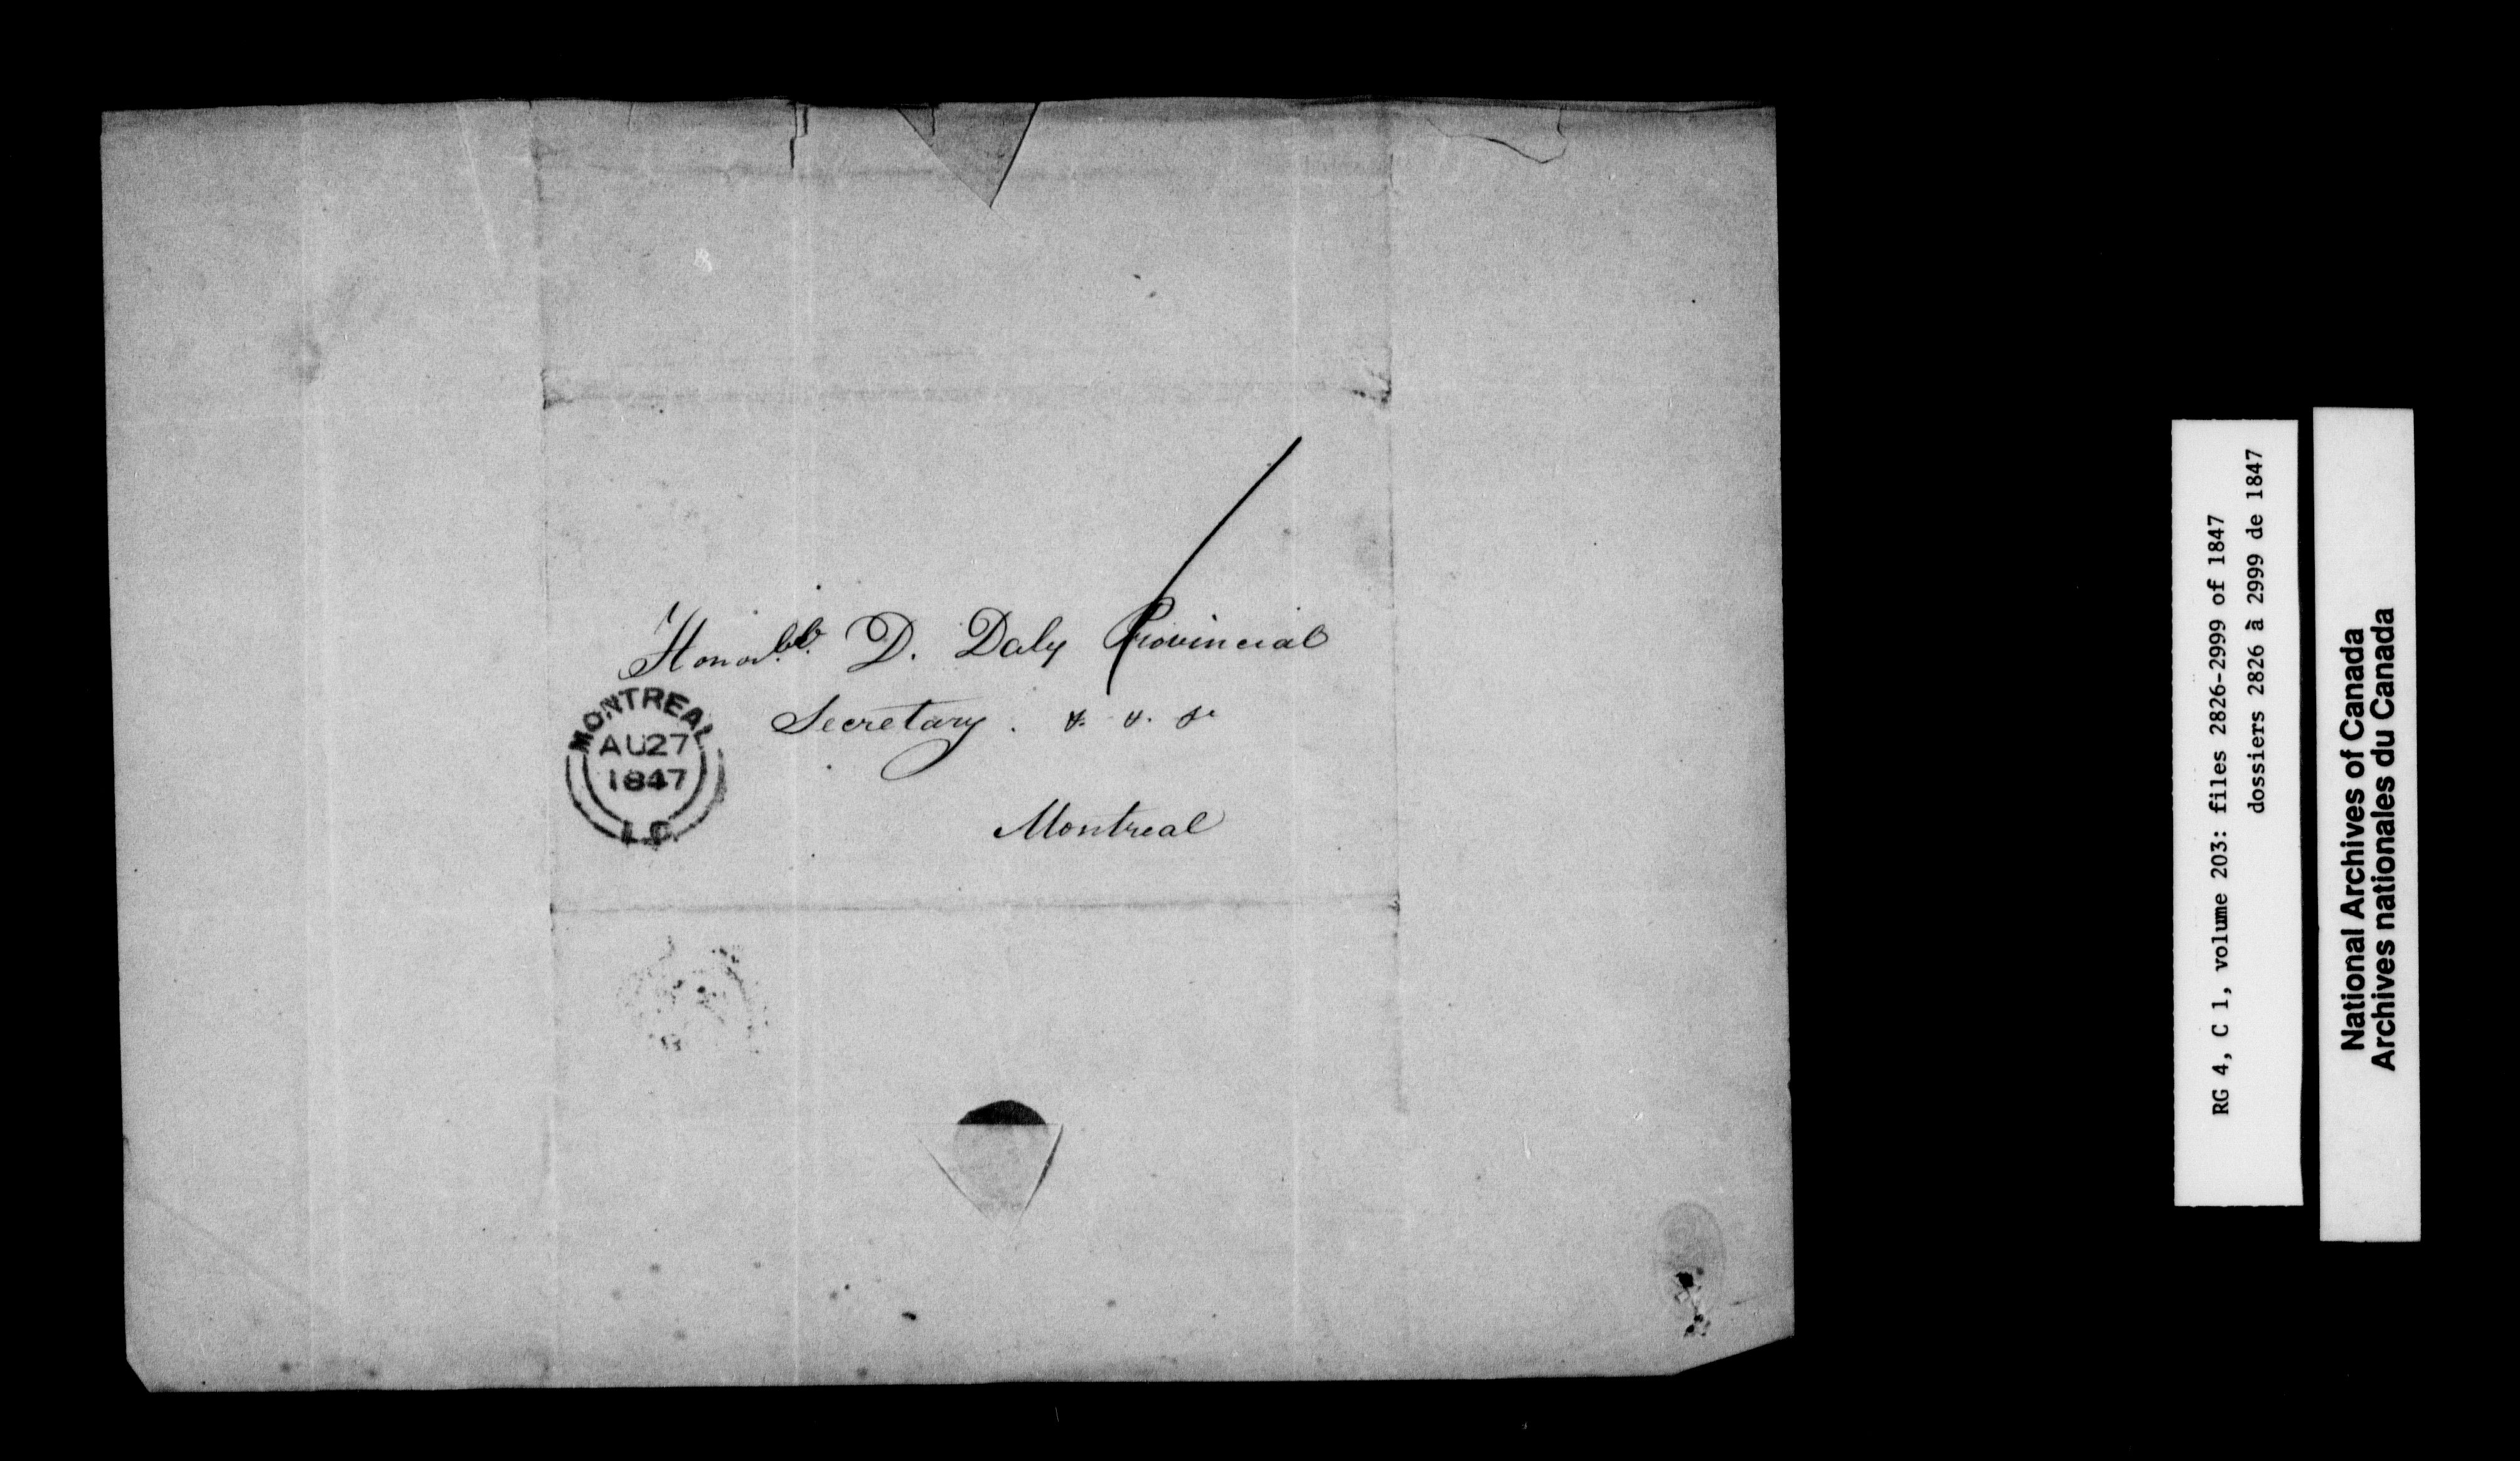 Honorble. D. Daly Provincial
Secretary. &. &. &c
Montreal
MONTREAL
AU27
1847
L.C.
RG 4, C 1, volume 203: files 2826-2999 of 1847
dossiers 2826 à 2999 de 1847
National Archives of Canada
Archives nationales du Canada